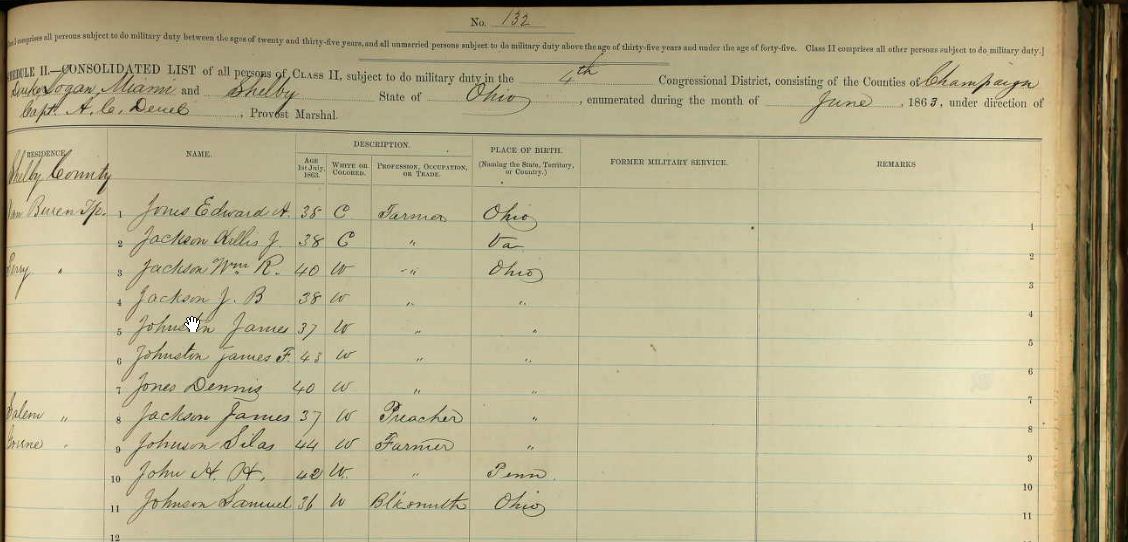 No. 132
comprises all persons subject to do military duty between the ages of twenty and thirty-five years, and all unmarried persons subject to do military duty above the age of thirty-five years and under the age of forty-five. Class II comprises all other persons subject to do military duty.]
SCHEDULE II.—CONSOLIDATED LIST of all persons of CLASS II, subject to do military duty in the 4th Congressional District, consisting of the Counties of Champaign
Logan, Miami and Shelby State of Ohio, enumerated during the month of June, 1863, under direction of
Capt. A. C. Deuel, Provost Marshal.
RESIDENCE. NAME. DESCRIPTION. PLACE OF BIRTH. (Naming the State, Territory, or Country.) FORMER MILITARY SERVICE. REMARKS
AGE 1st July, 1863. WHITE OR COLORED. PROFESSION, OCCUPATION, OR TRADE.
Shelby County
Van Buren Tp. 1 Jones Edward A. 38 C Farmer Ohio 1
2 Jackson J. 38 C " Va 2
Perry " 3 Jackson Wm R. 40 W " Ohio 3
4 Jackson J. B 38 W " " 4
5 Johnston James 37 W " " 5
6 Johnston James F. 43 W " " 6
7 Jones Dennis 40 W " " 7
Salem " 8 Jackson James 37 W Preacher " 8
" 9 Johnson Silas 44 W Farmer " 9
10 John H. H. 42 W. " Penn. 10
11 Johnson Samuel 36 W Blksmith Ohio 11
12